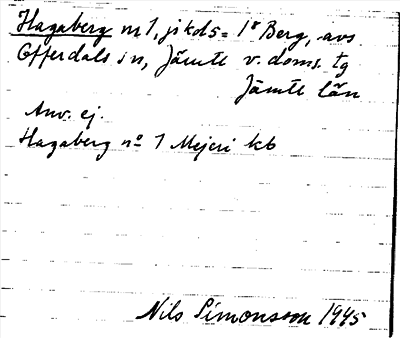 Hagaberg nr 1, jikds = 1⁸ Berg, avs
Offerdals sn, Jämtl v. doms. tg
Jämtl län
Anv. ej.
Hagaberg nº 1 Mejeri kb
Nils Simonsson 1945